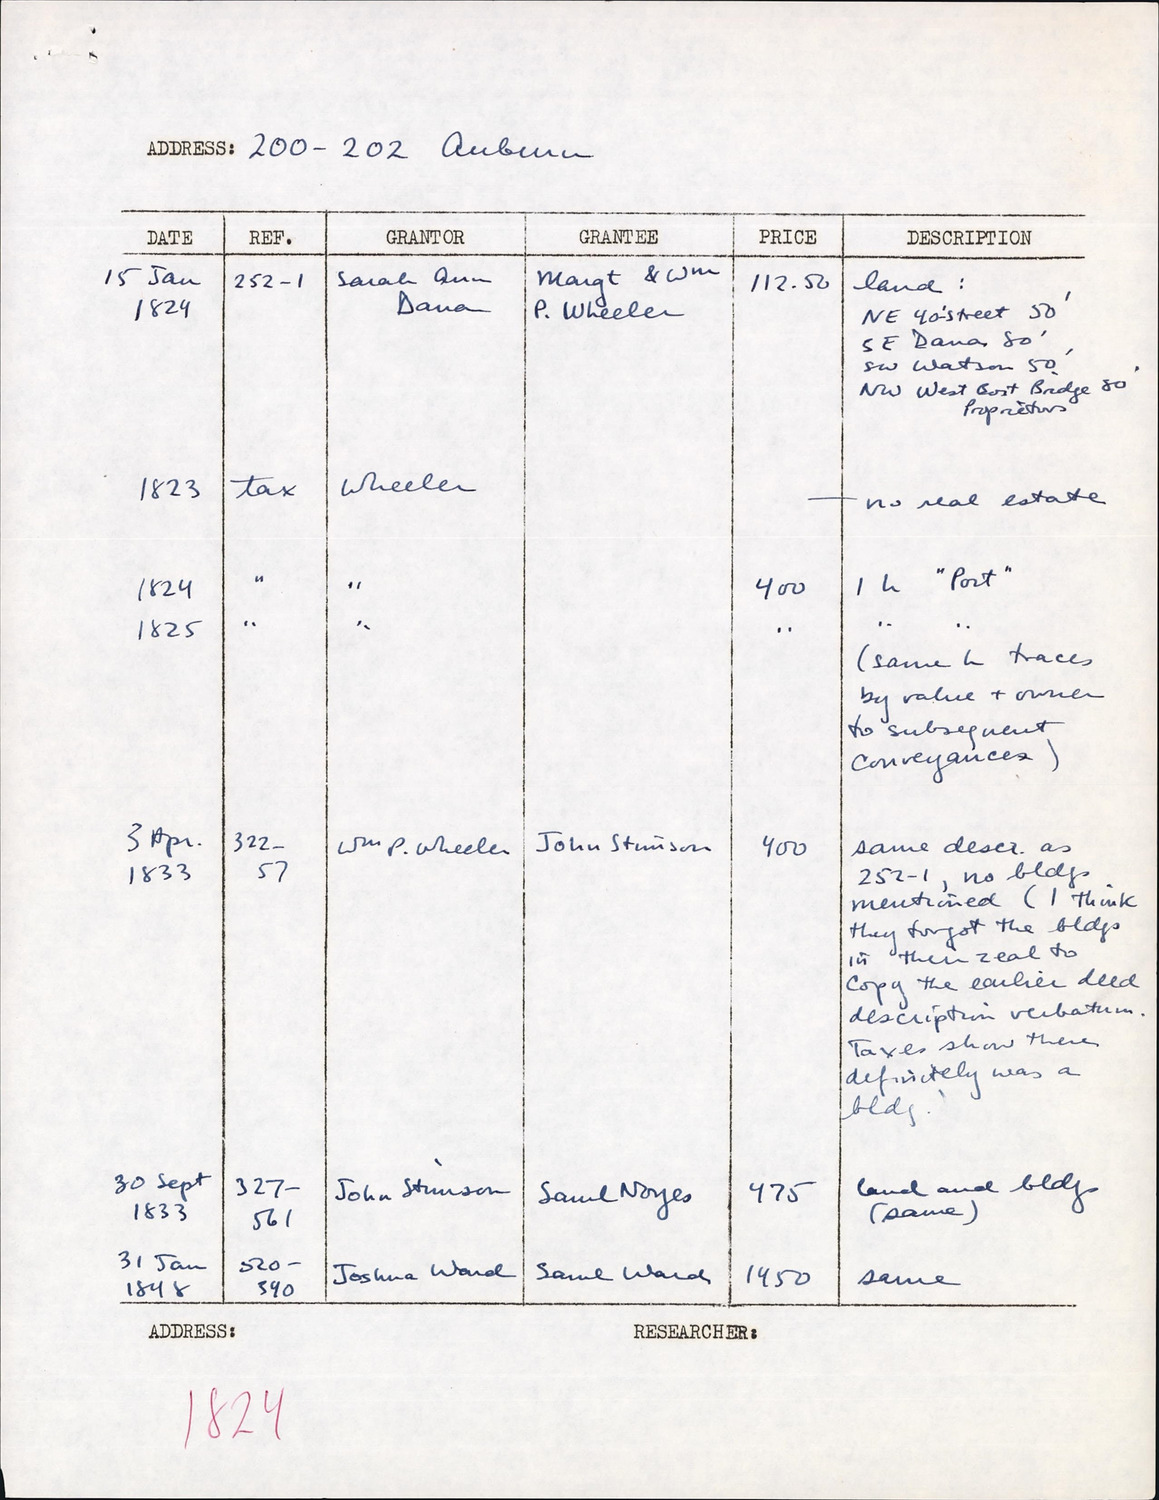 ADDRESS: 200-202 Auburn
DATE REF. GRANTOR GRANTEE PRICE DESCRIPTION
15 Jan 252-1 Sarah Ann Margt & Wm 112.50 land:
1824 Dana P. Wheeler
NE 40' street 50'
SE Dana 80'
SW Watson 50'
NW West Bost Bridge 80'
Proprietors
1823 tax Wheeler — no real estate
1824 " " 400 1 h "Port"
1825 " " " " "
(same h traces
by value + owner
to subsequent
conveyances)
3 Apr. 322- Wm P. Wheeler John Stimson 400 same descr. as
1833 57 252-1, no bldgs
mentioned (I think
they forgot the bldgs
in their zeal to
copy the earlier deed
description verbatum.
Taxes show there
definitely was a
bldg.
30 Sept 327- John Stimson Saml Noyes 475 land and bldgs
1833 561 (same)
31 Jan 520- Joshua Ward Saml Ward 1450 same
1848 390
ADDRESS: RESEARCHER:
1824